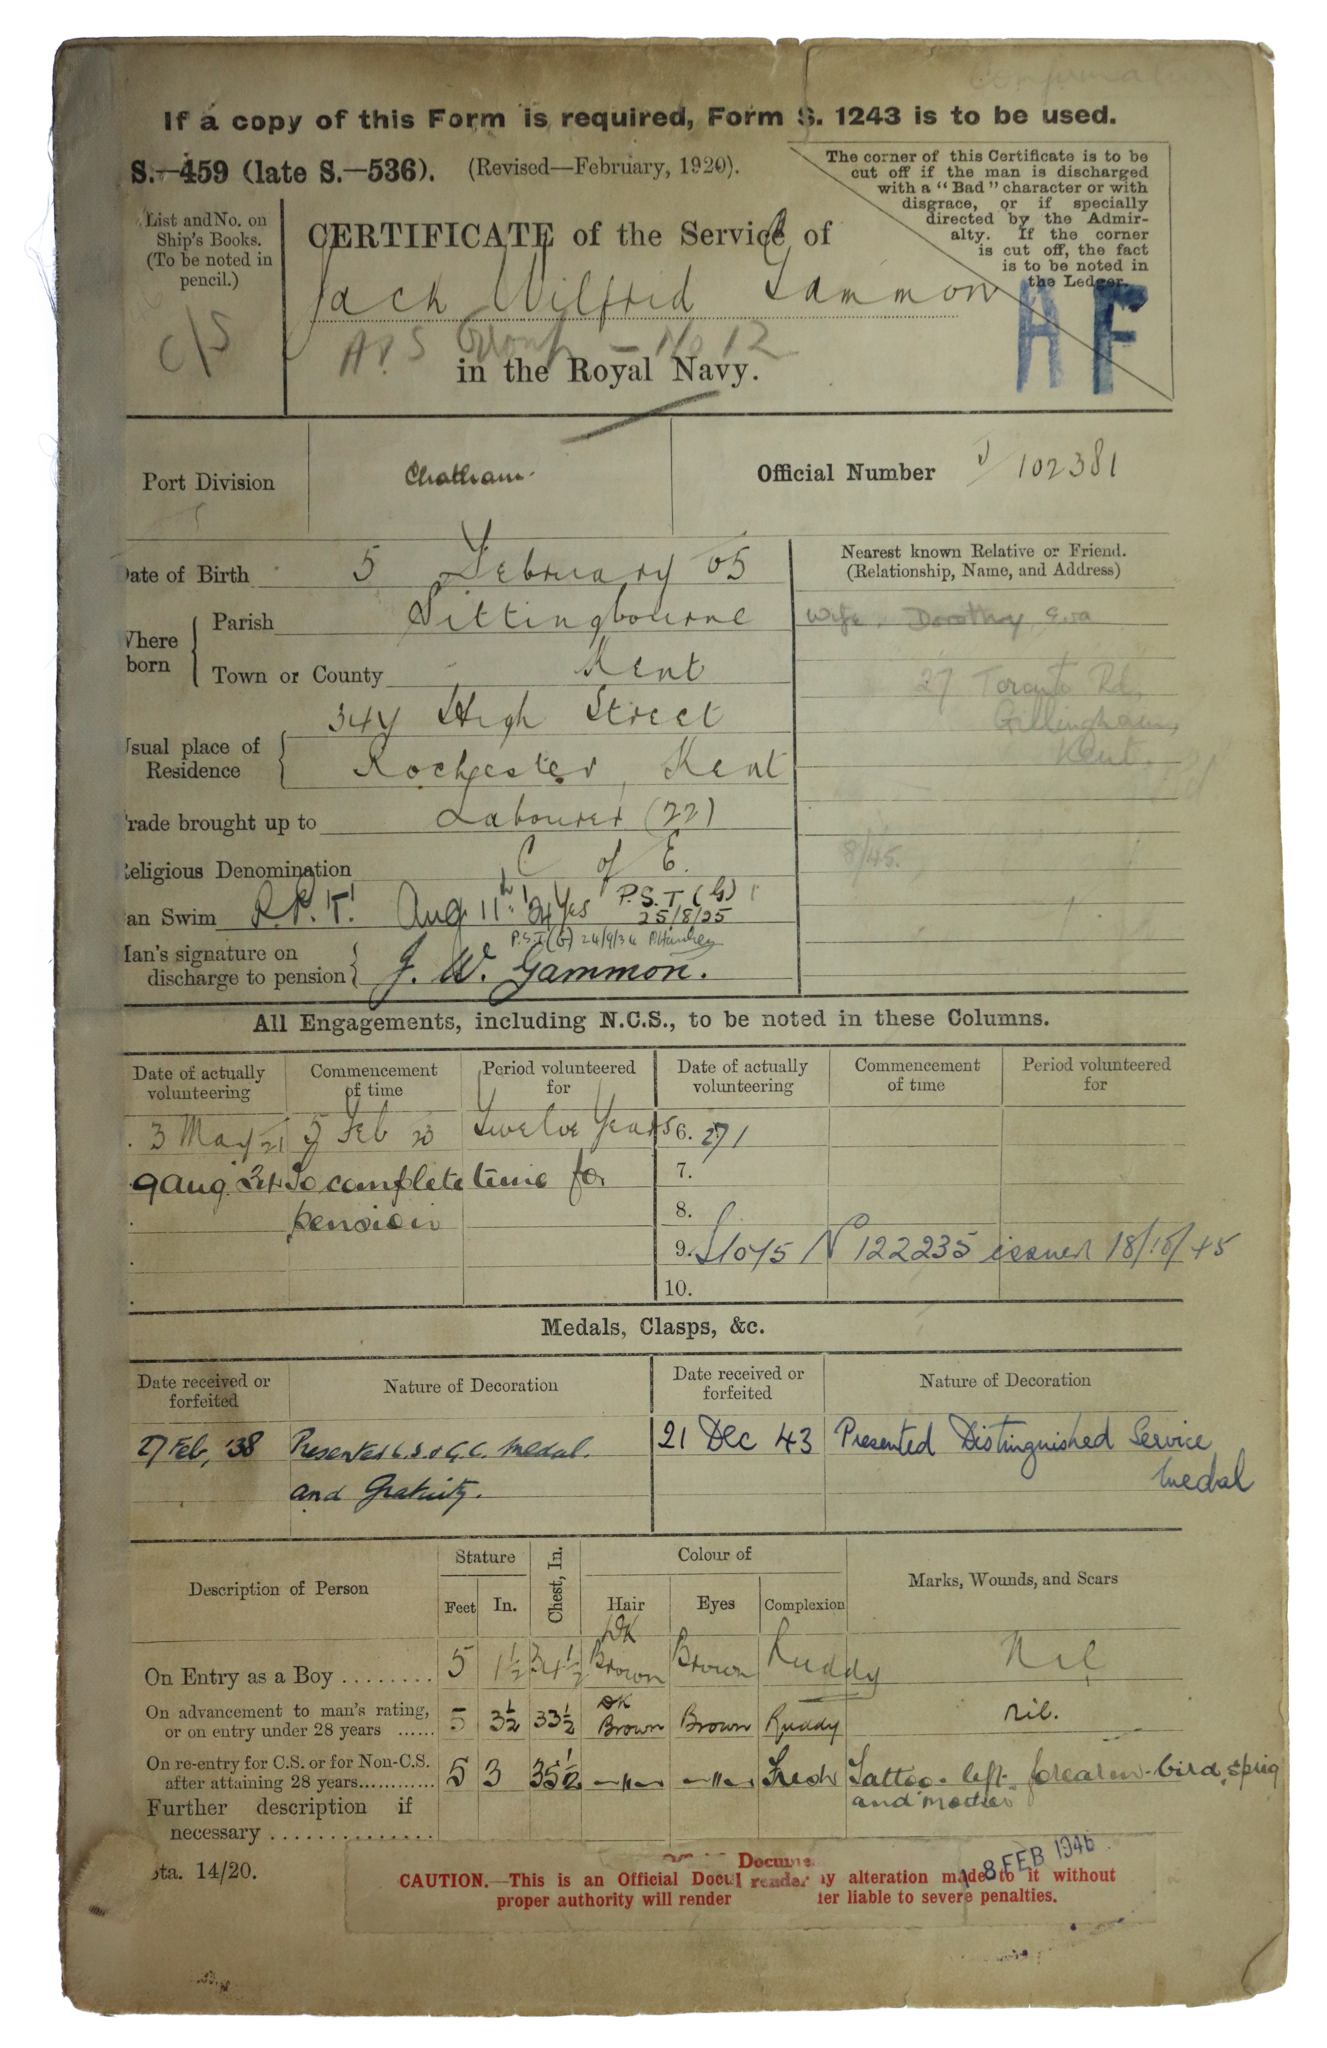 If a copy of this Form is required, Form S. 1243 is to be used.
S.—459 (late S.—536). (Revised—February, 1920).
The corner of this Certificate is to be
cut off if the man is discharged
with a "Bad" character or with
disgrace, or if specially
directed by the Admir-
alty. If the corner
is cut off, the fact
is to be noted in
the Ledger.
List and No. on
Ship's Books.
(To be noted in
pencil.)
C/S
CERTIFICATE of the Service of
Jack Wilfrid Gammon
No 12
in the Royal Navy.
A F
Port Division Chatham Official Number J/102381
ate of Birth 5 February 05
Where born Parish Sittingbourne
Town or County Kent
sual place of Residence 344 High Street
Rochester, Kent
rade brought up to Labourer (22)
eligious Denomination C of E.
an Swim P.P.T. Aug 11th '21 Yes P.S.T. (G)
25/8/25
P.S.T (G) 24/9/34
an's signature on discharge to pension J. W. Gammon.
Nearest known Relative or Friend.
(Relationship, Name, and Address)
Wife. Dorothy Eva
27 Toronto Rd.
Gillingham,
Kent.
8/45.
All Engagements, including N.C.S., to be noted in these Columns.
Date of actually volunteering Commencement of time Period volunteered for Date of actually volunteering Commencement of time Period volunteered for
3 May 21 5 Feb 23 Twelve Years 6. 271
9 Aug. 34 To complete time for 7.
pension 8.
9. S1075 N 122235 issued 18/10/45
10.
Medals, Clasps, &c.
Date received or forfeited Nature of Decoration Date received or forfeited Nature of Decoration
27 Feb, '38 Presented L.S. & G.C. Medal. 21 Dec 43 Presented Distinguished Service
and Gratuity. Medal
Description of Person Stature Feet In. Chest, In. Colour of Hair Eyes Complexion Marks, Wounds, and Scars
On Entry as a Boy ........ 5 1½ 34½ DK Brown Brown Ruddy Nil
On advancement to man's rating, or on entry under 28 years ...... 5 3½ 33½ DK Brown Brown Ruddy nil.
On re-entry for C.S. or for Non-C.S. after attaining 28 years............ 5 3 35½ —"— —"— Fresh Tattoo - left forearm - bird, sprig
and "mother"
Further description if
necessary ...............
Sta. 14/20.
18 FEB 1946
CAUTION.—This is an Official Docu render y alteration made to it without
proper authority will render ter liable to severe penalties.